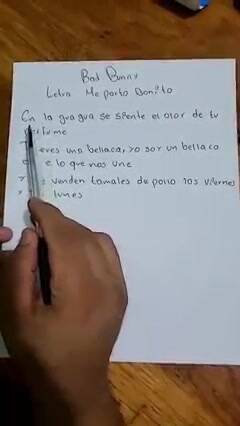 Bad Bunny
Letra Me porto Bonito
En la guagua se siente el olor de tu
eres una bellaca, yo soy un bellaco
e lo que nos une
venden tamales de pollo los viernes
lunes